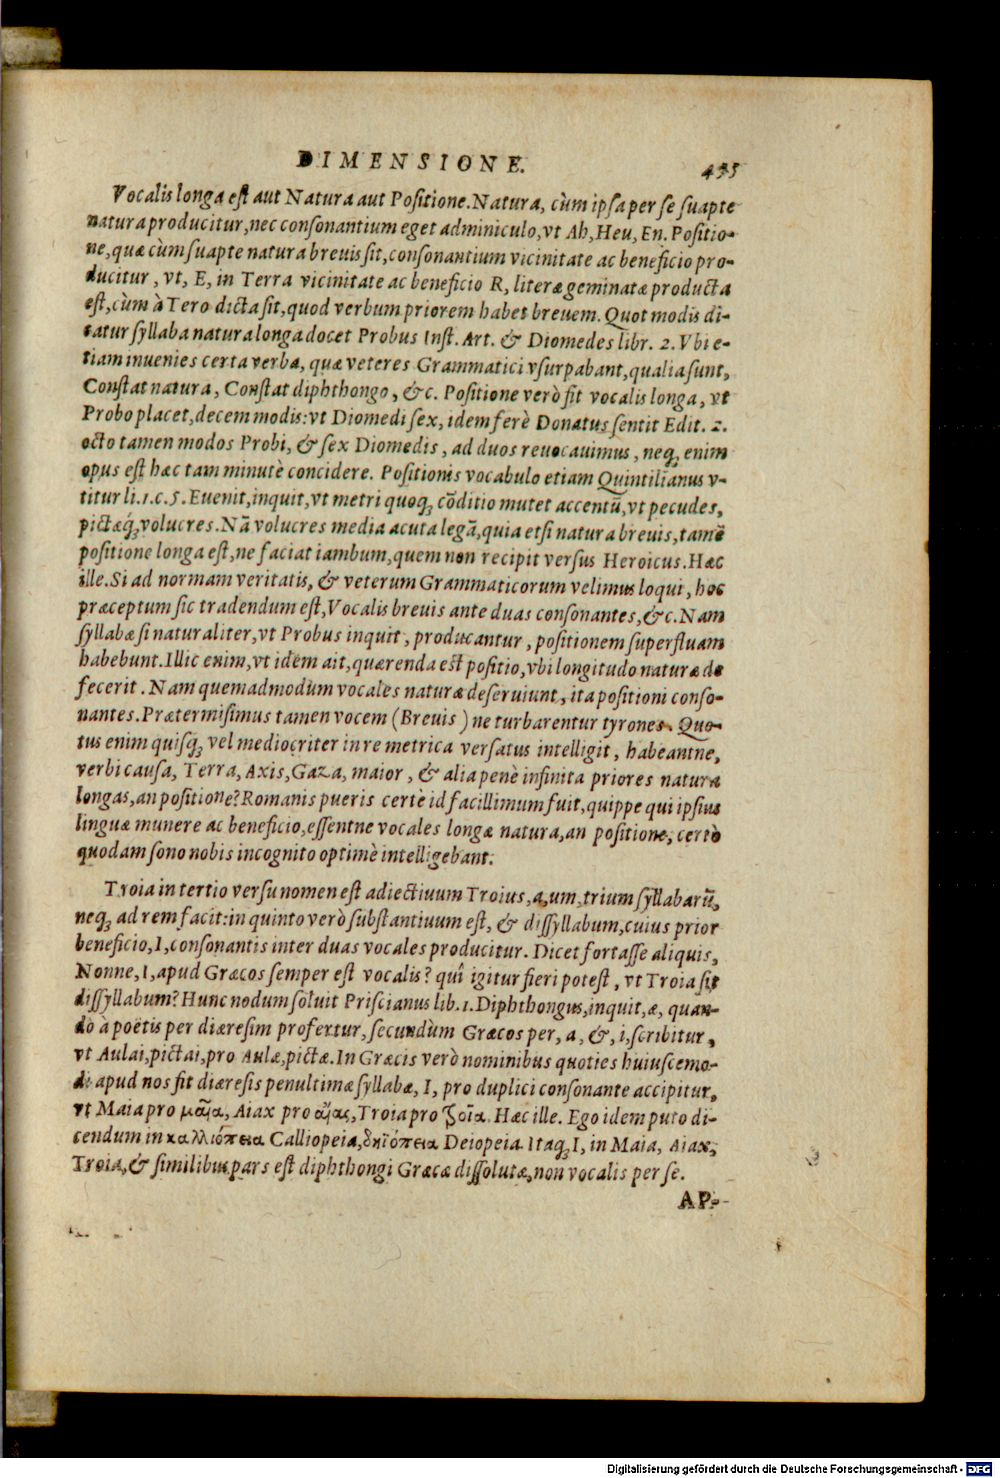 DIMENSIONE. 435
Vocalis longa eſt aut Natura aut Poſitione. Natura, cùm ipſa per ſe ſuapte
natura producitur, nec conſonantium eget adminiculo, vt Ah, Heu, En. Poſitio-
ne, quæ cùm ſuapte natura breuis ſit, conſonantium vicinitate ac beneficio pro-
ducitur, vt, E, in Terra vicinitate ac beneficio R, literæ geminatæ producta
eſt, cùm à Tero dicta ſit, quod verbum priorem habet breuem. Quot modis di-
catur ſyllaba natura longa docet Probus Inſt. Art. & Diomedes libr. 2. Vbi e-
tiam inuenies certa verba, quæ veteres Grammatici vſurpabant, qualia ſunt,
Conſtat natura, Conſtat diphthongo, &c. Poſitione verò fit vocalis longa, vt
Probo placet, decem modis: vt Diomedi ſex, idem ferè Donatus ſentit Edit. 2.
octo tamen modos Probi, & ſex Diomedis, ad duos reuocauimus, neq; enim
opus eſt hæc tam minutè concidere. Poſitionis vocabulo etiam Quintilianus v-
titur li. 1. c. 5. Euenit, inquit, vt metri quoq; cōditio mutet accentū, vt pecudes,
pictæq́; volucres. Nā volucres media acuta legā, quia etſi natura breuis, tamē
poſitione longa eſt, ne faciat iambum, quem non recipit verſus Heroicus. Hæc
ille. Si ad normam veritatis, & veterum Grammaticorum velimus loqui, hoc
præceptum ſic tradendum eſt, Vocalis breuis ante duas conſonantes, &c. Nam
ſyllabæ ſi naturaliter, vt Probus inquit, producantur, poſitionem ſuperfluam
habebunt. Illic enim, vt idem ait, quærenda eſt poſitio, vbi longitudo naturæ de
fecerit. Nam quemadmodum vocales naturæ deſeruiunt, ita poſitioni conſo-
nantes. Prætermiſimus tamen vocem (Breuis) ne turbarentur tyrones. Quo-
tus enim quiſq; vel mediocriter in re metrica verſatus intelligit, habeantne,
verbi cauſa, Terra, Axis, Gaza, maior, & alia penè infinita priores natura
longas, an poſitione? Romanis pueris certè id facillimum fuit, quippe qui ipſius
linguæ munere ac beneficio, eſſentne vocales longæ natura, an poſitione, certo
quodam ſono nobis incognito optimè intelligebant.
Troia in tertio verſu nomen eſt adiectiuum Troius, a, um, trium ſyllabarū,
neq; ad rem facit: in quinto verò ſubſtantiuum eſt, & diſſyllabum, cuius prior
beneficio, I, conſonantis inter duas vocales producitur. Dicet fortaſſe aliquis,
Nonne, I, apud Græcos ſemper eſt vocalis? quî igitur fieri poteſt, vt Troia ſit
diſſyllabum? Hunc nodum ſoluit Priſcianus lib. 1. Diphthongus, inquit, æ, quan-
do à poëtis per diæreſim profertur, ſecundùm Græcos per, a, &, i, ſcribitur,
vt Aulai, pictai, pro Aulæ, pictæ. In Græcis verò nominibus quoties huiuſcemo-
di apud nos fit diæreſis penultimæ ſyllabæ, I, pro duplici conſonante accipitur,
vt Maia pro μαῖα, Aiax pro αἴας, Troia pro τροία. Hæc ille. Ego idem puto di-
cendum in καλλιόπεια Calliopeia, δηϊόπεια Deiopeia. Itaq; I, in Maia, Aiax,
Troia, & ſimilibus pars eſt diphthongi Græcæ diſſolutæ, non vocalis per ſe.
AP-
Digitalisierung gefördert durch die Deutsche Forschungsgemeinschaft - DFG